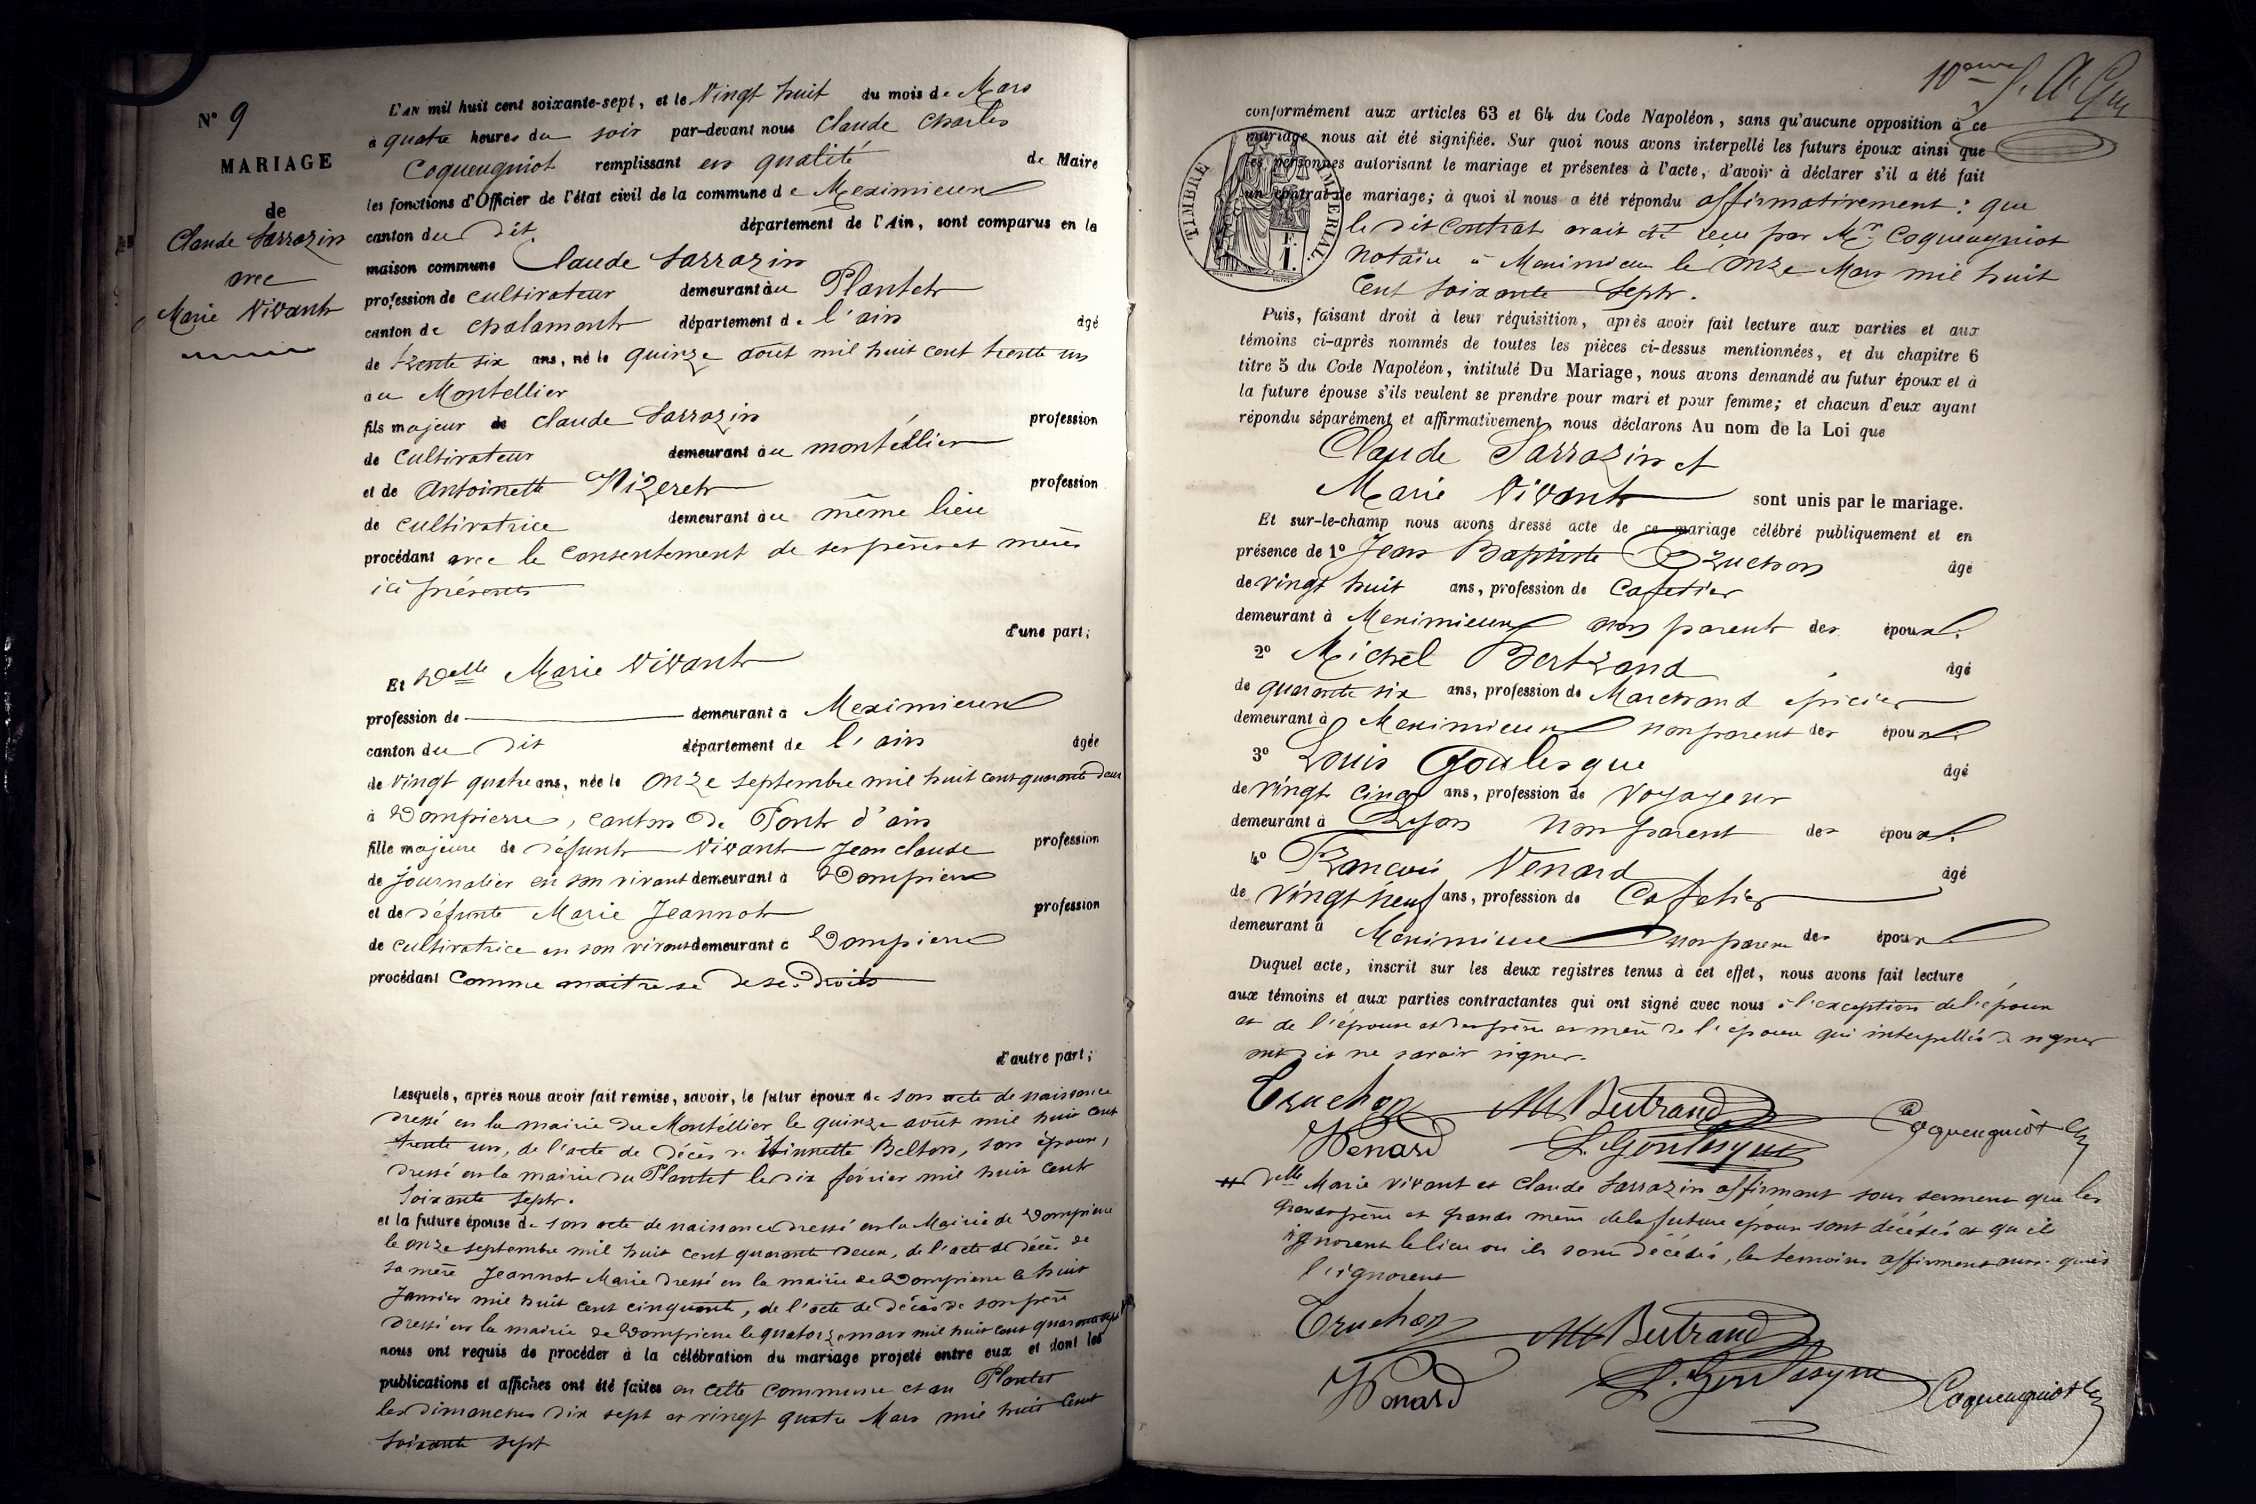 N° 9
MARIAGE
de
Claude Sarrazin
avec
Marie Vivant
L'AN mil huit cent soixante-sept, et le Vingt huit du mois de Mars
à quatre heures du soir par-devant nous Claude Charles
Coqueugniot remplissant en qualité de Maire
les fonctions d'Officier de l'état civil de la commune de Meximieux
canton du dit département de l'Ain, sont comparus en la
maison commune Claude Sarrazin
profession de cultivateur demeurant au Plantet
canton de Chalamont département de l'ain âgé
de trente six ans, né le quinze août mil huit cent trente un
au Montellier
fils majeur de Claude Sarrazin profession
de cultivateur demeurant au montéllier
et de Antoinette Nizeret profession
de cultivatrice demeurant au même lieu
procédant avec le consentement de ses père et mère
ici présents
d'une part;
Et Delle Marie Vivant
profession de demeurant à Meximieux
canton du dit département de l'ain âgée
de vingt quatre ans, née le onze septembre mil huit cent quarante deux
à Dompierre, canton de Pont d'ain
fille majeure de défunt Vivant Jean Claude profession
de journalier en son vivant demeurant à Dompierre
et de défunte Marie Jeannot profession
de cultivatrice en son vivant demeurant à Dompierre
procédant comme maitresse de ses droits
d'autre part;
Lesquels, après nous avoir fait remise, savoir, le futur époux de son acte de naissance
dressé en la mairie du Montéllier le quinze août mil huit cent
trente un, de l'acte de décès de Belton, son épouse,
dressé en la mairie du Plantet le dix février mil huit cent
soixante sept.
et la future épouse de son acte de naissance dressé en la Mairie de Dompierre
le onze septembre mil huit cent quarante deux, de l'acte de décès de
sa mère Jeannot Marie dressé en la mairie de Dompierre le huit
Janvier mil huit cent cinquante, de l'acte de décès de son père
dressé en la mairie de Dompierre le quatorze mars mil huit cent quarante sept
nous ont requis de procéder à la célébration du mariage projeté entre eux et dont les
publications et affiches ont été faites en cette commune et au Plantet
les dimanches dix sept et vingt quatre Mars mil huit cent
soixante sept
10eme
conformément aux articles 63 et 64 du Code Napoléon, sans qu'aucune opposition à ce
mariage nous ait été signifiée. Sur quoi nous avons interpellé les futurs époux ainsi que
les personnes autorisant le mariage et présentes à l'acte, d'avoir à déclarer s'il a été fait
un contrat de mariage; à quoi il nous a été répondu affirmativement: que
le dit contrat avait été reçu par Mr Coqueugniot
notaire à Meximieux le onze Mars mil huit
cent soixante sept.
TIMBRE IMPÉRIAL
Puis, faisant droit à leur réquisition, après avoir fait lecture aux parties et aux
témoins ci-après nommés de toutes les pièces ci-dessus mentionnées, et du chapitre 6
titre 5 du Code Napoléon, intitulé Du Mariage, nous avons demandé au futur époux et à
la future épouse s'ils veulent se prendre pour mari et pour femme; et chacun d'eux ayant
répondu séparément et affirmativement nous déclarons Au nom de la Loi que
Claude Sarrazin et
Marie Vivant sont unis par le mariage.
Et sur-le-champ nous avons dressé acte de ce mariage célébré publiquement et en
présence de 1° Jean Baptiste Truchon âgé
de vingt huit ans, profession de Cafetier
demeurant à Meximieux non parent des époux.
2° Michel Bertrand âgé
de quarante six ans, profession de Marchand épicier
demeurant à Meximieux non parent des époux.
3° Louis Goulesque âgé
de vingt cinq ans, profession de Voyageur
demeurant à Lyon non parent des époux.
4° François Venard âgé
de vingt neuf ans, profession de Cafetier
demeurant à Meximieux non parent des époux
Duquel acte, inscrit sur les deux registres tenus à cet effet, nous avons fait lecture
aux témoins et aux parties contractantes qui ont signé avec nous à l'exception de l'époux
et de l'épouse et des père et mère de l'époux qui interpellés de signer
ont dit ne savoir signer.
Truchon M Bertrand Coqueugniot
Venard L. Goulesque
Delle Marie vivant et Claude Sarrazin affirment sous serment que les
grands pères et grands mères de la future épouse sont décédés et qu'ils
ignorent le lieu ou ils sont décédés, les temoins affirment aussi qu'ils
l'ignorent
Truchon M Bertrand
Venard L. Goulesque Coqueugniot